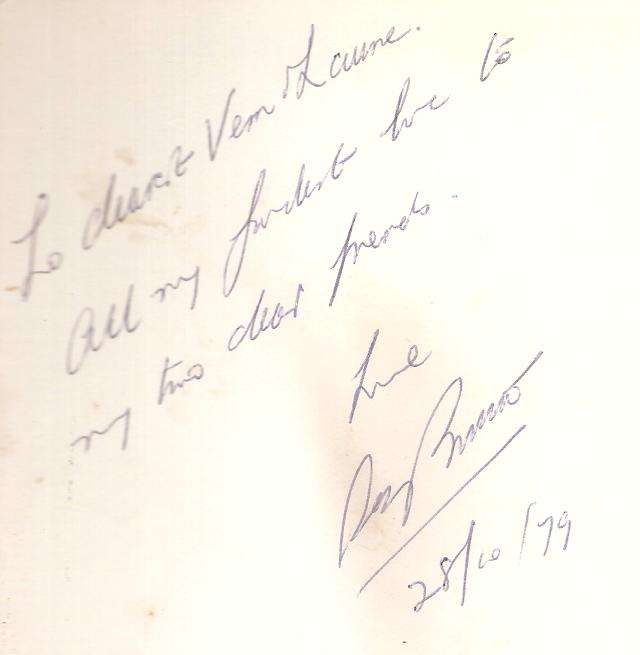 To dearest Vern & Laurie.
All my fondest love to
my two dear friends.
Love
28/10/79